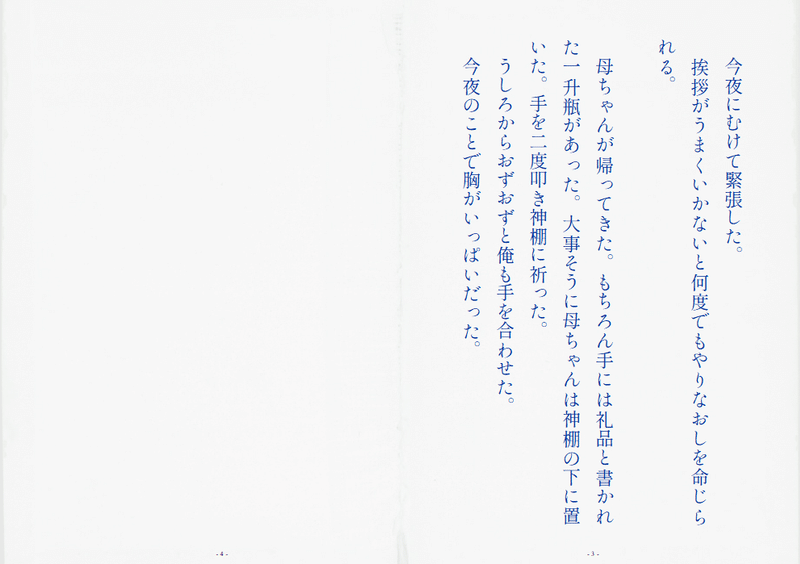 今夜にむけて緊張した。
挨拶がうまくいかないと何度でもやりなおしを命じら
れる。
母ちゃんが帰ってきた。もちろん手には礼品と書かれ
た一升瓶があった。大事そうに母ちゃんは神棚の下に置
いた。手を二度叩き神棚に祈った。
うしろからおずおずと俺も手を合わせた。
今夜のことで胸がいっぱいだった。
- 3 -
- 4 -